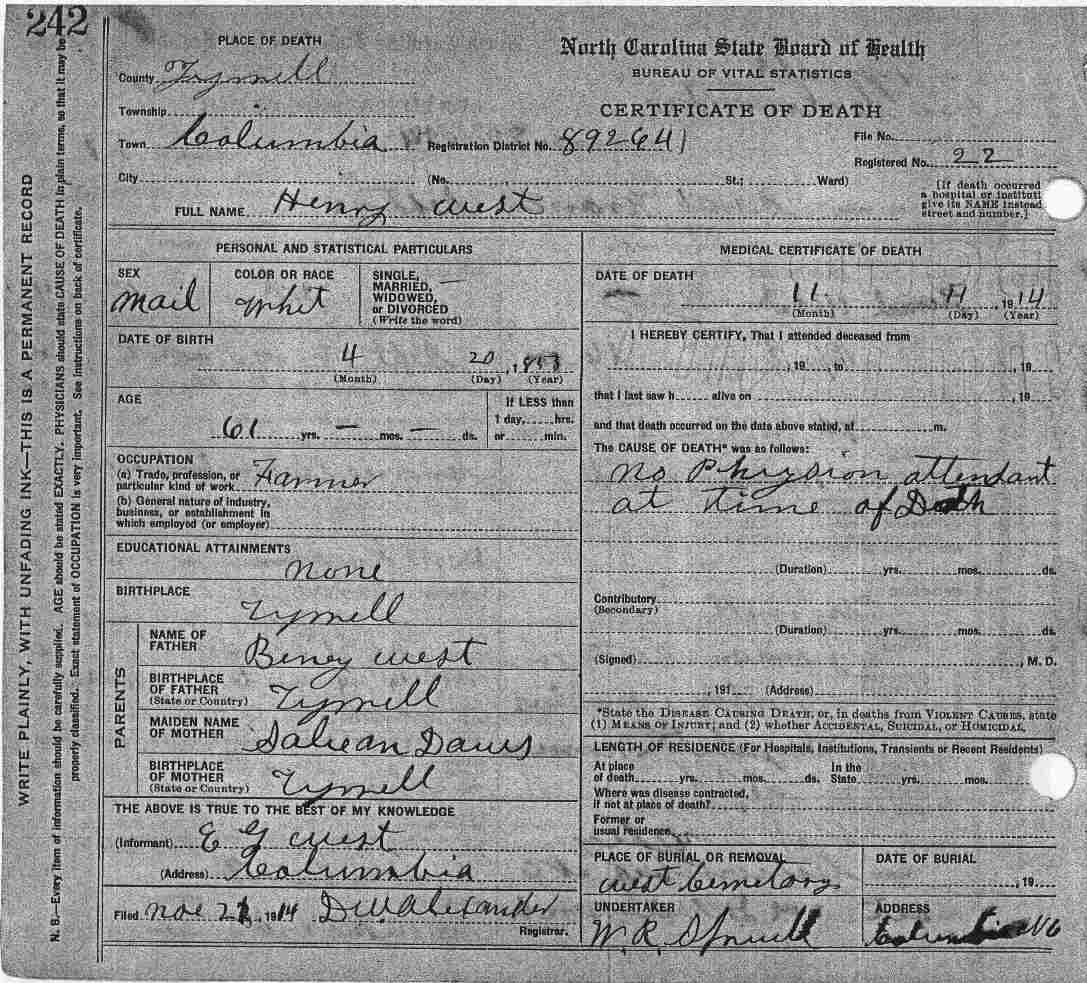 242
WRITE PLAINLY, WITH UNFADING INK—THIS IS A PERMANENT RECORD
N. B.—Every item of information should be carefully supplied. AGE should be stated EXACTLY. PHYSICIANS should state CAUSE OF DEATH in plain terms, so that it may be
properly classified. Exact statement of OCCUPATION is very important. See instructions on back of certificate.
PLACE OF DEATH
North Carolina State Board of Health
BUREAU OF VITAL STATISTICS
County Tyrrell
CERTIFICATE OF DEATH
Township
Town Columbia Registration District No. 892641 File No.
Registered No. 22
City (No. St.; Ward)
[If death occurred
a hospital or instituti
give its NAME instead
street and number.]
FULL NAME Henry West
PERSONAL AND STATISTICAL PARTICULARS
SEX
mail
COLOR OR RACE
Whit
SINGLE,
MARRIED,
WIDOWED,
or DIVORCED
(Write the word)
—
DATE OF BIRTH
4 20, 1853
(Month) (Day) (Year)
AGE
61 yrs. — mos. — ds.
If LESS than
1 day, hrs.
or min.
OCCUPATION
(a) Trade, profession, or
particular kind of work Farmer
(b) General nature of industry,
business, or establishment in
which employed (or employer)
EDUCATIONAL ATTAINMENTS
none
BIRTHPLACE
Tyrrell
PARENTS
NAME OF
FATHER
Beney West
BIRTHPLACE
OF FATHER
(State or Country)
Tyrrell
MAIDEN NAME
OF MOTHER
Saliean Davis
BIRTHPLACE
OF MOTHER
(State or Country)
Tyrrell
THE ABOVE IS TRUE TO THE BEST OF MY KNOWLEDGE
(Informant) E G West
(Address) Columbia
Filed 1914 D W Alexander
Registrar.
MEDICAL CERTIFICATE OF DEATH
DATE OF DEATH
11 11, 1914
(Month) (Day) (Year)
I HEREBY CERTIFY, That I attended deceased from
, 19 to , 19
that I last saw h alive on , 19
and that death occurred on the date above stated, at m.
The CAUSE OF DEATH* was as follows:
no Physion attendant
at time of Deth
(Duration) yrs. mos. ds.
Contributory
(Secondary)
(Duration) yrs. mos. ds.
(Signed) , M. D.
, 191 (Address)
*State the DISEASE CAUSING DEATH, or, in deaths from VIOLENT CAUSES, state
(1) MEANS OF INJURY; and (2) whether ACCIDENTAL, SUICIDAL, or HOMICIDAL.
LENGTH OF RESIDENCE (For Hospitals, Institutions, Transients or Recent Residents)
At place
of death yrs. mos. ds.
In the
State yrs. mos.
Where was disease contracted,
if not at place of death?
Former or
usual residence
PLACE OF BURIAL OR REMOVAL
West Cemetary
DATE OF BURIAL
, 19
UNDERTAKER
W. R. Spruill
ADDRESS
Columbia NC